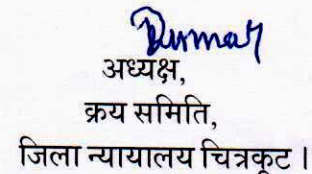 अध्यक्ष,
क्रय समिति,
जिला न्यायालय चित्रकूट ।